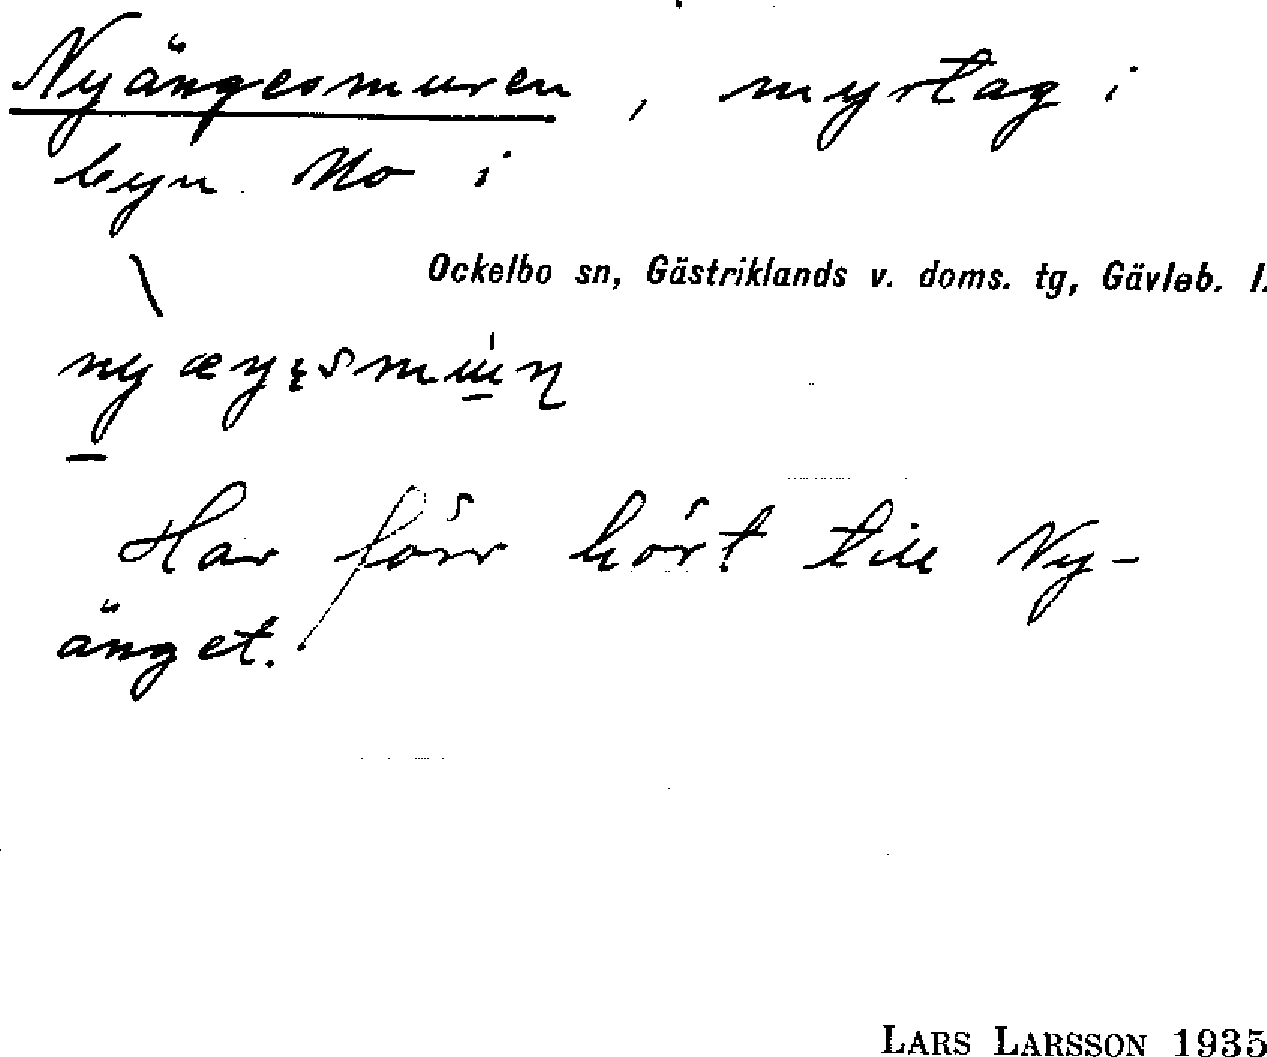 Nyängesmuren, myrtag i
byn Mo i
Ockelbo sn, Gästriklands v. doms. tg, Gävleb. l.
Har förr hört till Ny-
änget.
LARS LARSSON 1935